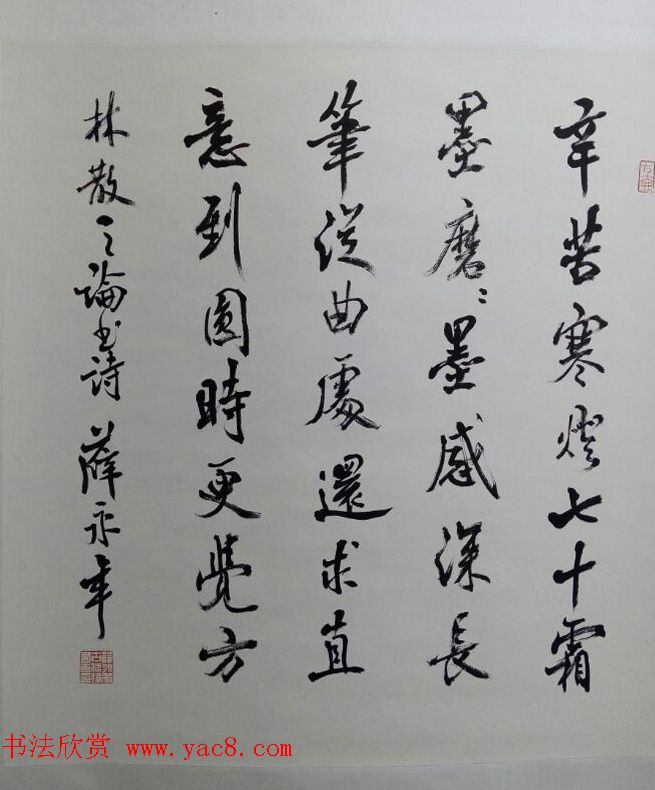 辛苦寒燈七十霜
墨磨〻墨感深長
筆從曲處還求直
意到圓時更覺方
林散之論书诗 薛永年
书法欣赏 www.yac8.com